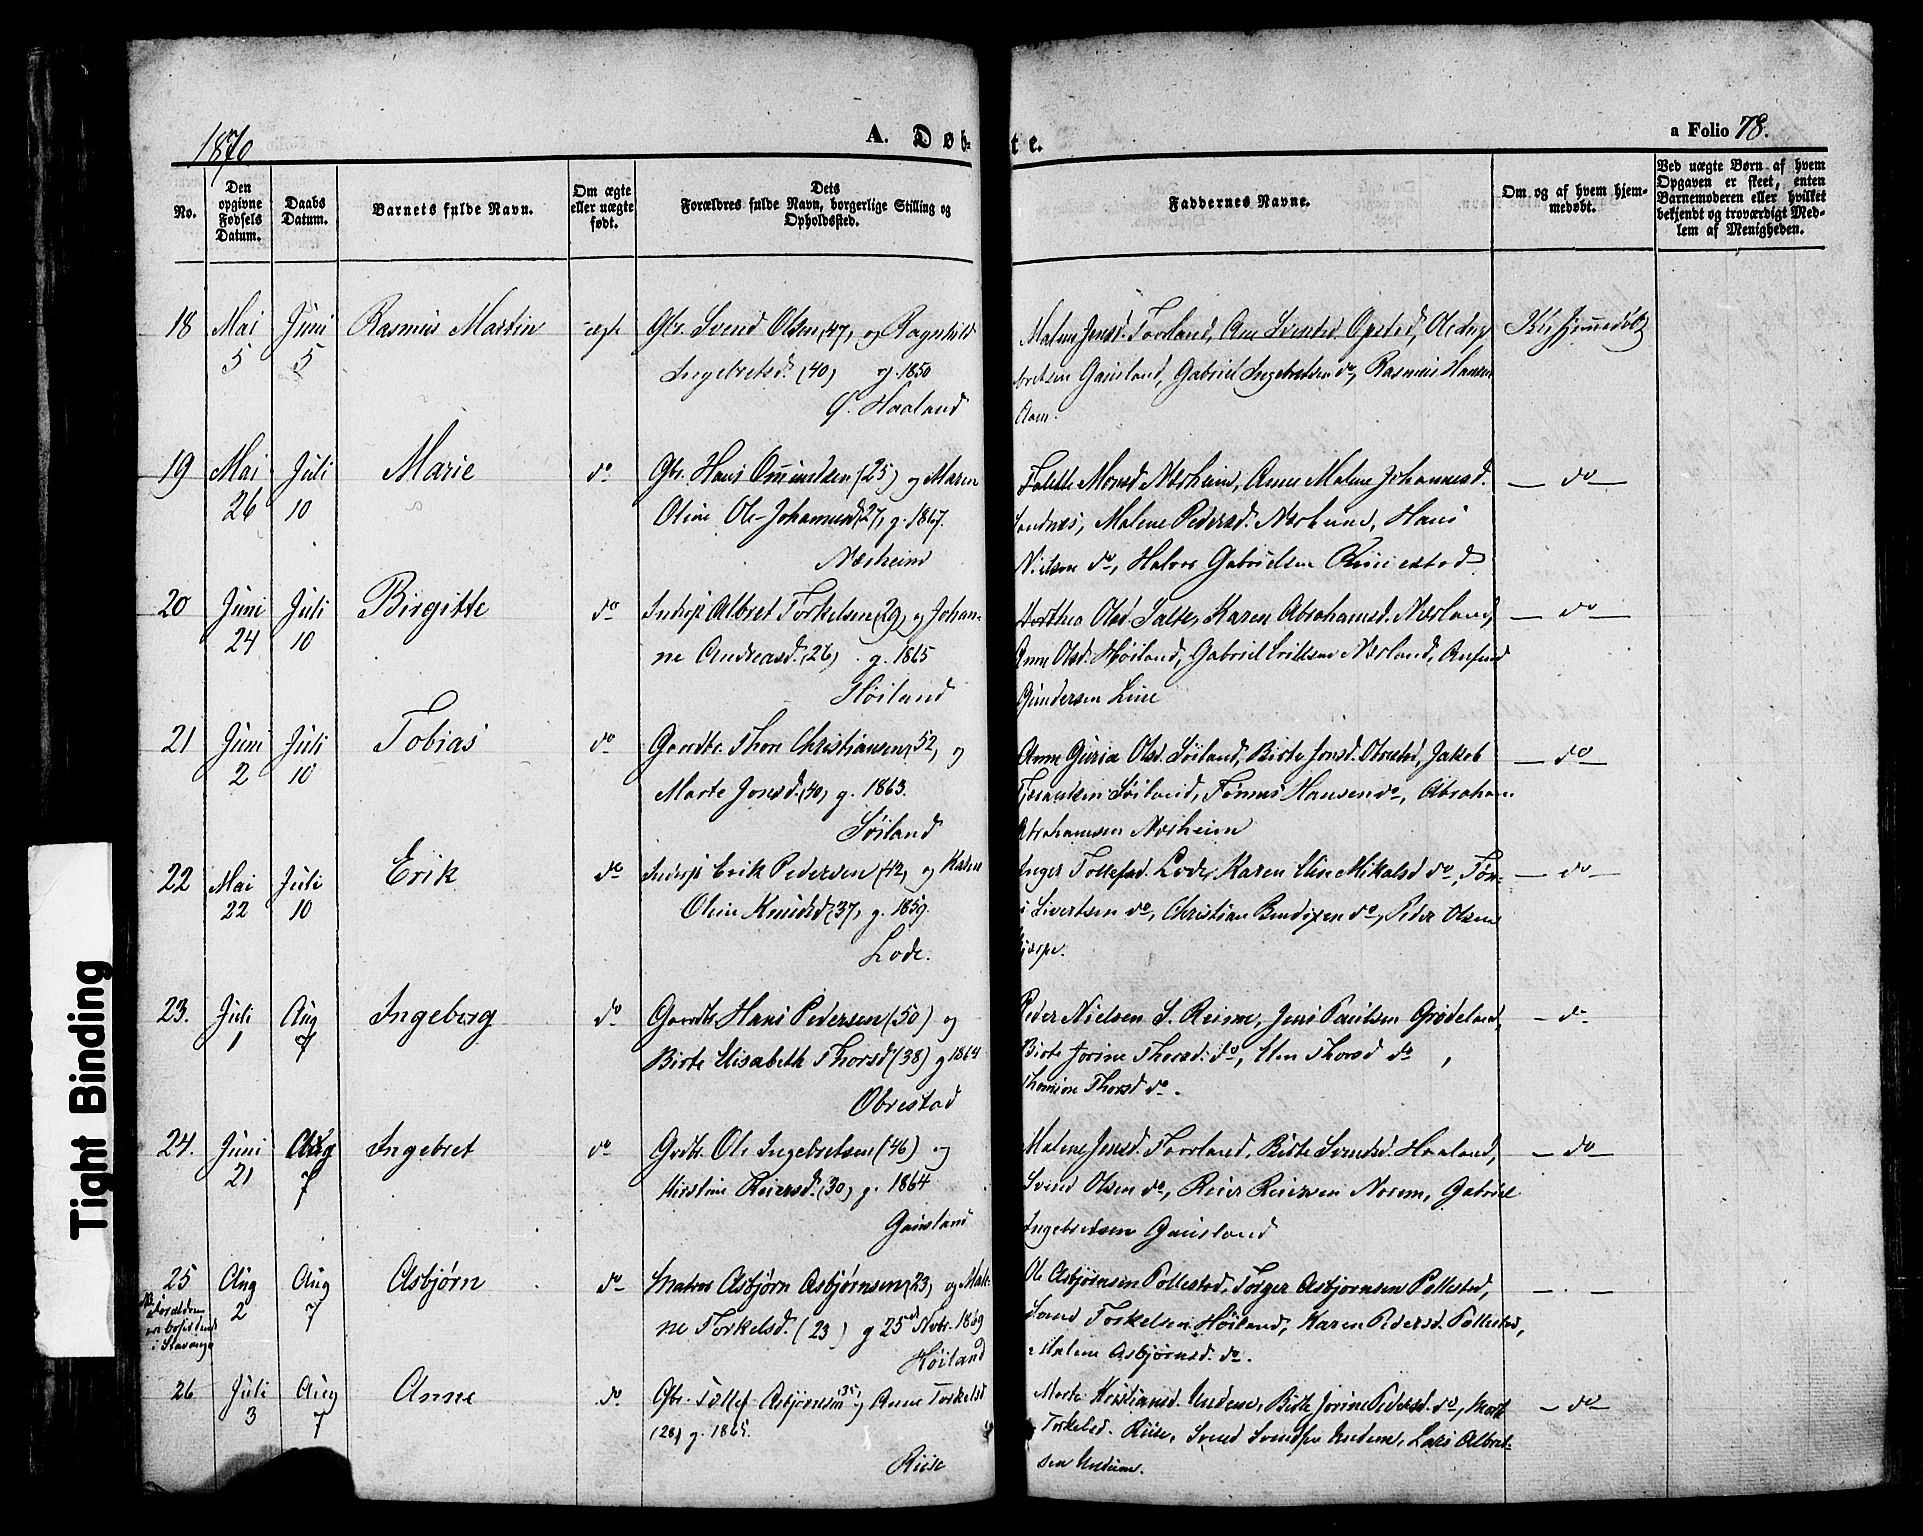 1870
A. Døb-
te.
a Folio 78.
No.
Den
opgivne
Fødsels
Datum.
Daabs
Datum.
Barnets fulde Navn.
Om ægte
eller uægte
født.
Dets
Forældres fulde Navn, borgerlige Stilling og
Opholdssted.
Faddernes Navne.
Om og af hvem hjem-
medøbt.
Ved uægte Børn af hvem
Opgaven er skeet, enten
Barnemoderen eller hvilket
bekjendt og troværdigt Med-
lem af Menigheden.
18 Mai Juni Rasmus Martin ægte Gbr. Svend Olsen (47) og Ragnhild
5 5 Ingebretsd. (40) g. 1850
G. Haaland
Malene Jensd. Torland, Ane Opsted, Ole Inge-
bretsen Gausland, Gabriel Ingebretsen do, Rasmus Hansen
Aam.
Ikke hjemmedøbt
19 Mai Juli Marie do Gbr. Hans Omundsen (25) og Maren
26 10 Oline Ole-Johannesd. (27) g. 1867.
Nærheim
Monsd Nærheim, Anne Malene Johannesd.
Malene Pedersd. Nærlund, Hans
Nielsen do, Halvor Gabrielsen
— do —
20 Juni Juli Birgitte do Inderst Albret Torkelsen (29) og Johan-
24 10 ne Andreasd. (26) g. 1865
Høiland
Dorthea Olsd. Salte, Karen Abrahamsd. Nærland,
Anne Olsd. Høiland, Gabriel Eriksen Nærland,
Gundersen Line
— do —
21 Juni Juli Tobias do Gaardbr. Thore Christiansen (52) og
2 10 Marte Jonsd. (40) g. 1863.
Søiland
Anne Guria Olsd. Søiland, Birte Jonsd. Obrestad, Jakob
Søiland, Tønnes Hansen do, Abraham
Abrahamsen Nærheim
— do —
22 Mai Juli Erik do Inderst Erik Pedersen (42) og Karen
22 10 Oline Knudsd (37) g. 1859.
Lode.
Inger Tollefsd. Lode, Karen Eline Mikalsd do, Tøn-
Sivertsen do, Christian Bendixen do, Peder Olsen
— do —
23. Juli Aug Ingeborg do Gaardbr. Hans Pedersen (50) og
1 7 Birte Elisabeth Thorsd (38) g 1864
Obrestad
Peder Nielsen S. Reime, Jens Paulsen Grødeland,
Birte Jorine Thorsd. do, Elen Thorsd do,
Thomine Thorsd do.
— do
24. Juni Aug Ingebret do Grdbr. Ole Ingebretsen (46) og
21 7 Kirstine Reiersd. (30) g. 1864
Gausland
Malene Jensd. Torland, Birte Svendsd. Haaland,
Svend Olsen do, Reier Reiersen Norem, Gabriel
Ingebretsen Gausland
— do —
25 Aug Aug Asbjørn do Matros Asbjørn Asbjørnsen (23) og Male-
2 7 ne Torkelsd. (23) g 25de Novbr. 1869
Høiland
NB. Forældrene
ere bosiddende
i Stavanger
Ole Asbjørnsen Pollestad, Torger Asbjørnsen Pollestad,
Svend Torkelsen Høiland, Karen Pedersd. Pollestad,
Malene Asbjørnsd. do.
26 Juli Aug Anne do Gbr. Tollef Asbjørnsen (35) og Anne Torkelsd
3 7 (28) g. 1865.
Riise
Marte Kristiansd. Undem, Birte Jorine Pedersd. do, Marte
Torkelsd. Riise, Svend Svendsen Undem, Lars Albret-
sen Undem.
— do —
Tight Binding